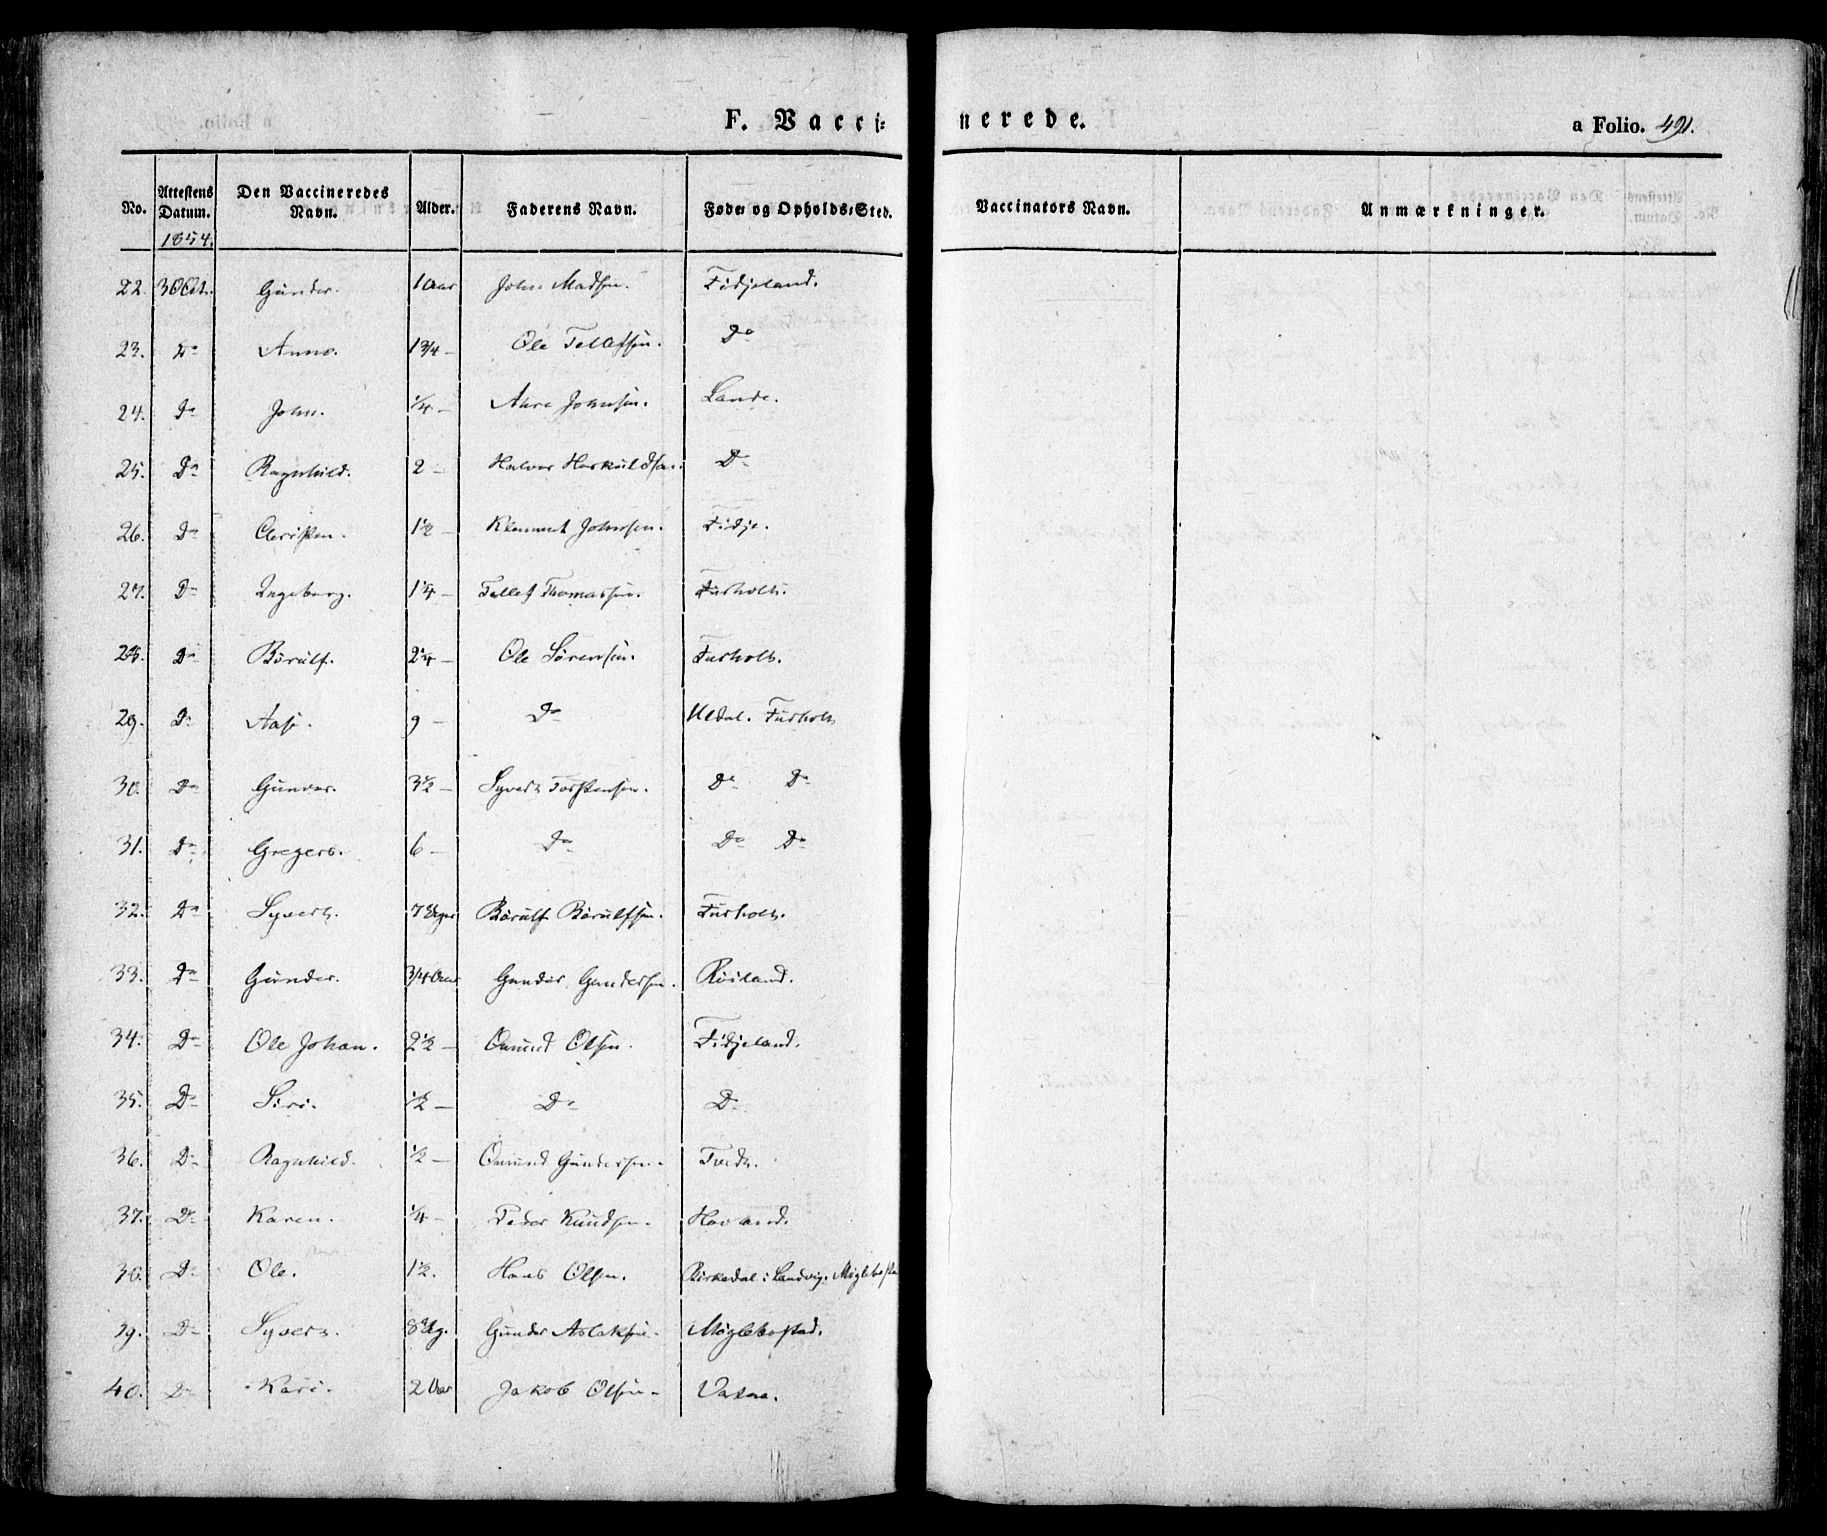 F. Vacci- nerede. a Folio. 491.
No. Attestens Datum. 1854. Den Vaccineredes Navn. Alder. Faderens Navn. Føde- og Opholds-Sted. Vaccinators Navn. Anmærkninger.
22. 3 Oct. Gunder. 1 Aar John Madsen. Fidjeland.
23. Do Anne. 1 3/4 – Ole Tellefsen. Do
24. Do John. 1/4 – Johnsen. Lande.
25. Do Ragnhild. 2 – Halvor Herkuldsen. Do
26. Do Christen. 1 1/2 – Klemmet Johnsen. Fidje.
27. Do Ingeborg. 1 1/4 – Tellef Thomassen. Furholt.
28. Do Börulf. 2 1/4 – Ole Sörensen. Furholt.
29. Do Aase. 9 – Do Uldal. Furholt
30. Do Gunvor. 3 1/2 – Syvert Torstensen. Do Do
31. Do Gregers. 6 – Do Do Do
32. Do Syvert. 7 Uger Börulf Börulfsen. Furholt.
33. Do Gunder. 3/4 Aar Gunder Gundersen. Röiland.
34. Do Ole Johan. 2 1/2 – Omund Olsen. Fidjeland.
35. Do Siri. 1/2 – Do Do
36. Do Ragnhild. 1/2 – Omund Gundersen. Tvedt.
37. Do Karen. 1/4 – Peder Knudsen. Hovland.
38. Do Ole. 1 1/2. Hans Olsen. Birkedal i Landvig. Möglebosta
39. Do Syvert. 8 Ug. Gunder Aslaksen. Möglebostad.
40. Do Kari. 2 Aar Jakob Olsen.